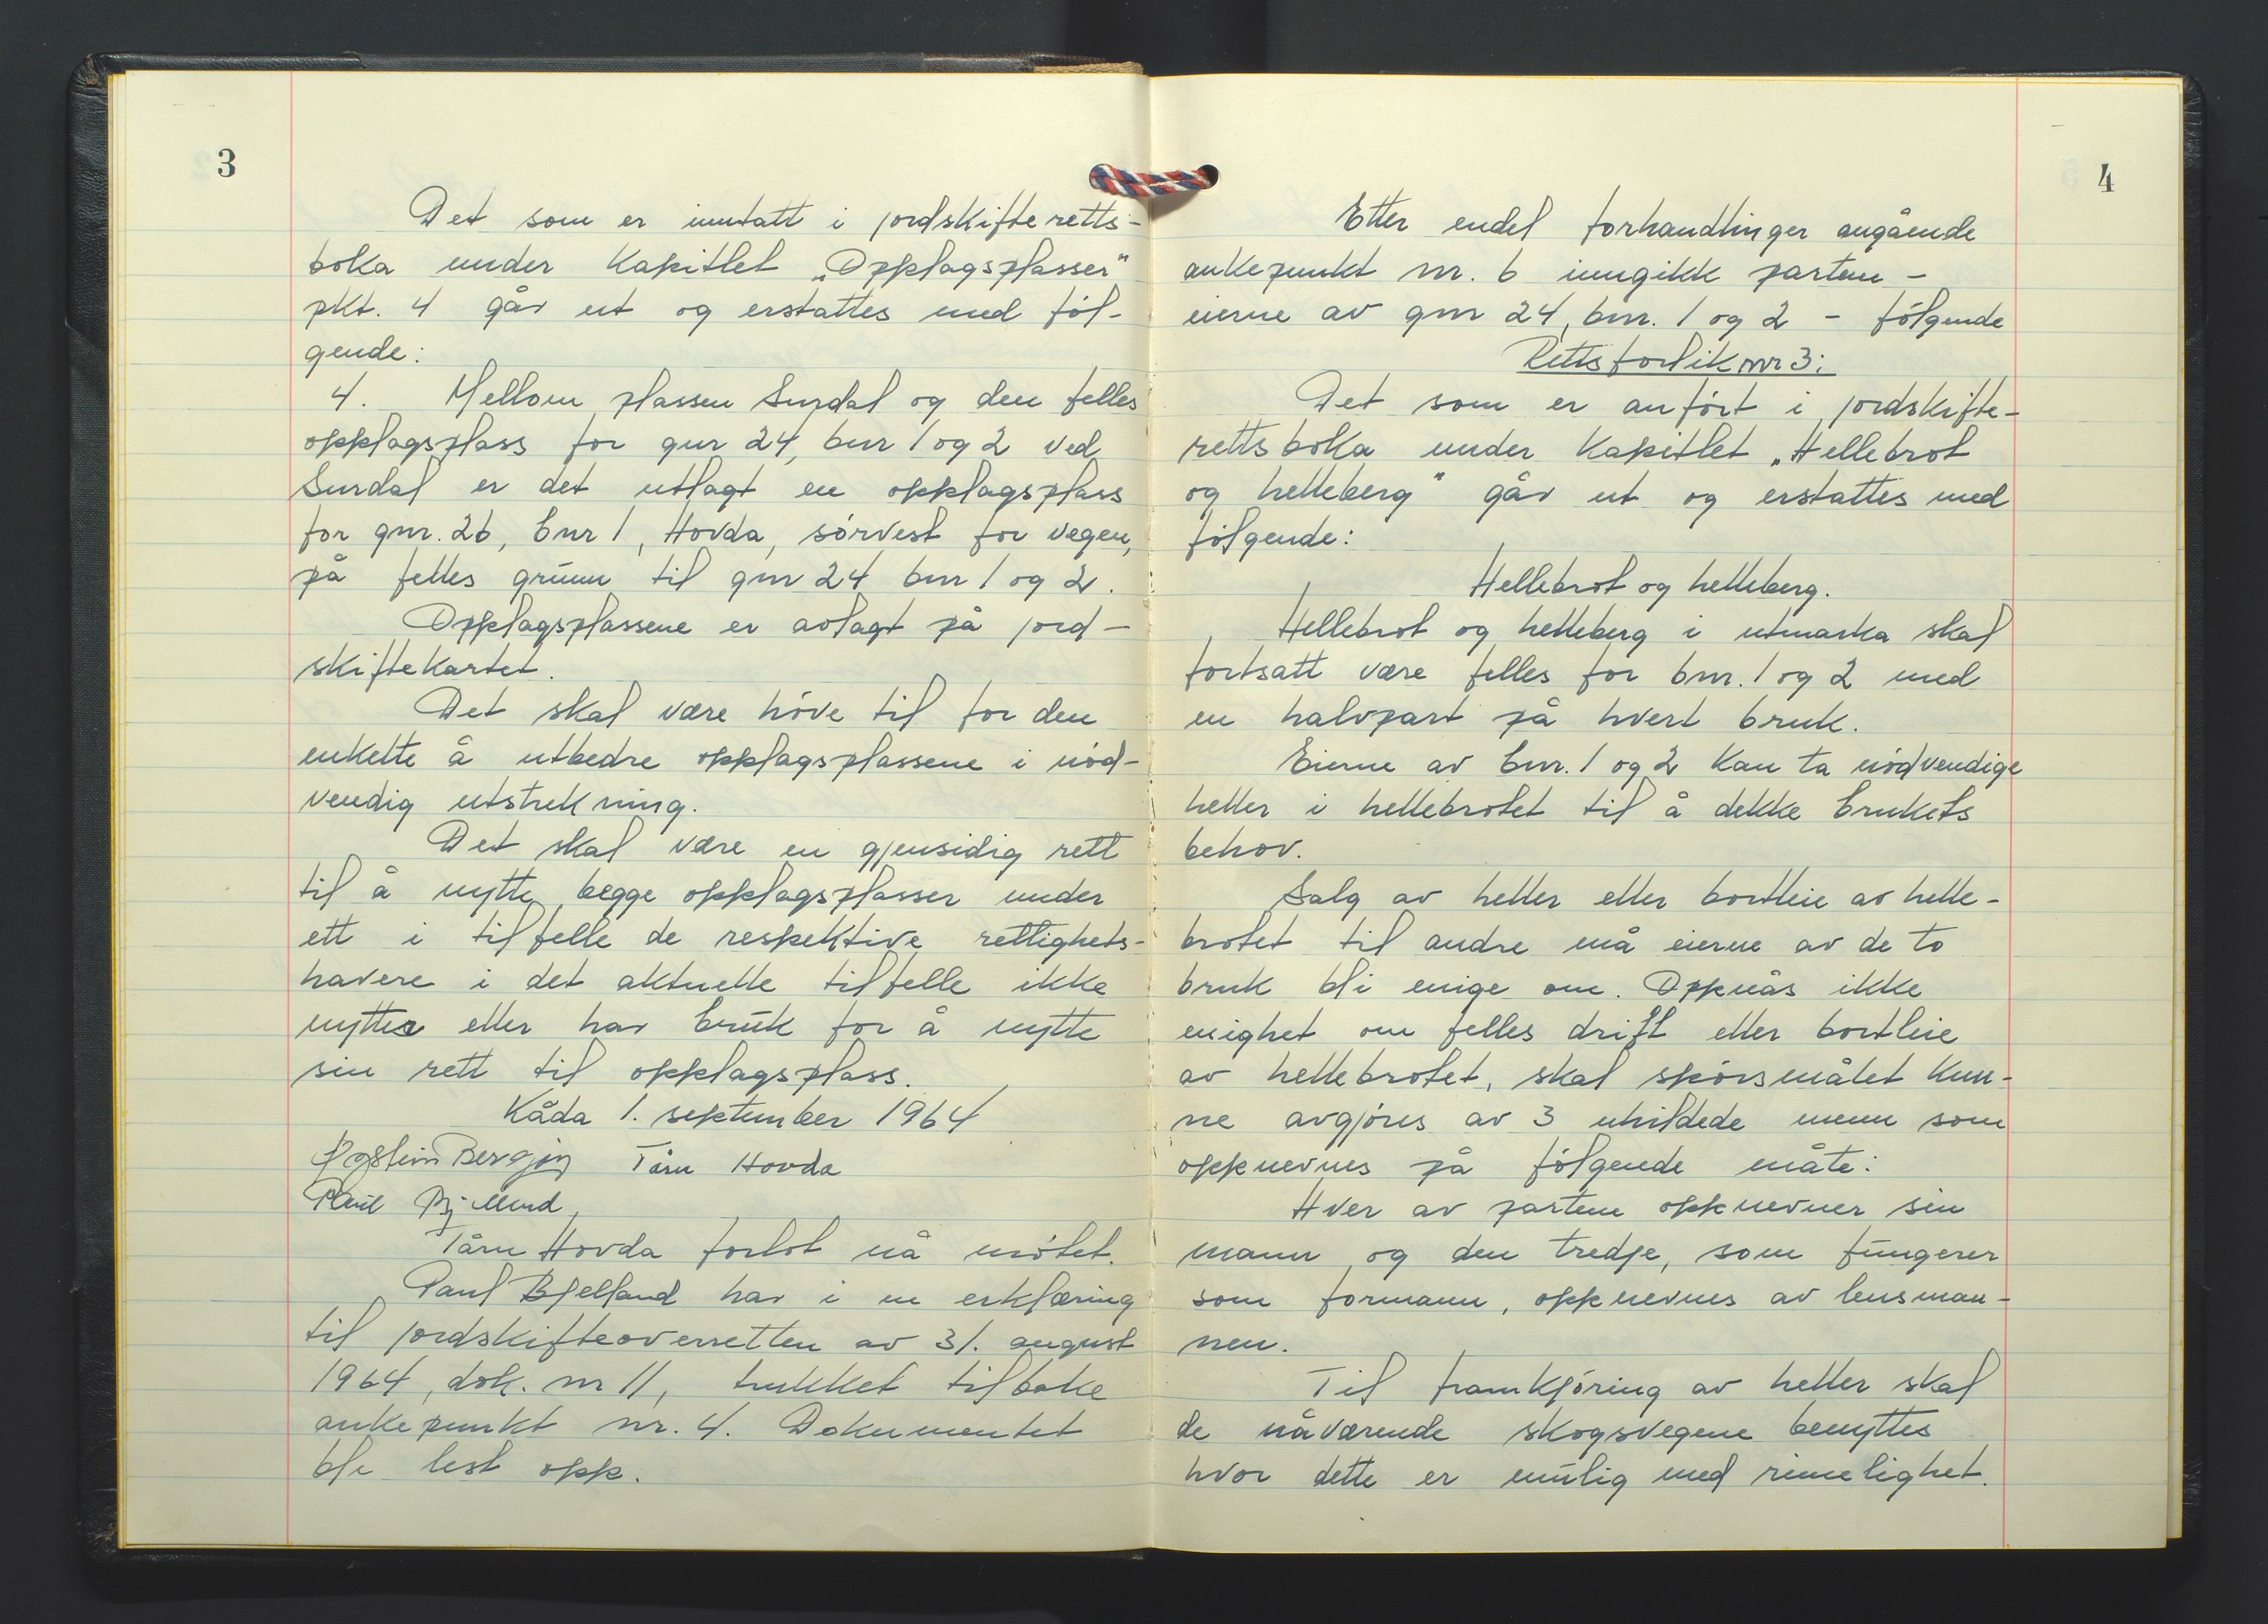 3
Det som er inntatt i jordskifteretts-
boka under kapitlet „Opplagsplasser"
pkt. 4 går ut og erstattes med föl-
gende:
4. Mellom plassen Surdal og den felles
opplagsplass for gnr 24, bnr 1 og 2 ved
Surdal er det utlagt en opplagsplass
for gnr. 26, bnr 1, Hovda, sörvest for vegen,
på felles grunn til gnr 24 bnr 1 og 2.
Opplagsplassene er avlagt på jord-
skiftekartet.
Det skal være höve til for den
enkelte å utbedre opplagsplassene i nöd-
vendig utstrekning.
Det skal være en gjensidig rett
til å nytte begge opplagsplasser under
ett i tilfelle de respektive rettighets-
havere i det aktuelle tilfelle ikke
nytter eller har bruk for å nytte
sin rett til opplagsplass.
Kåda 1. september 1964
Tårn Hovda
Tårn Hovda forlot nå mötet.
Paul Bjelland har i en erklæring
til jordskifteoverretten av 31. august
1964, dok. nr 11, trukket tilbake
ankepunkt nr. 4. Dokumentet
ble lest opp.
4
Etter endel forhandlinger angående
ankepunkt nr. 6 inngikk partene -
eierne av gnr 24, bnr. 1 og 2 - fölgende
Rettsforlik nr 3:
Det som er anfört i jordskifte-
rettsboka under kapitlet „Hellebrot
og helleberg" går ut og erstattes med
fölgende:
Hellebrot og helleberg.
Hellebrot og helleberg i utmarka skal
fortsatt være felles for bnr. 1 og 2 med
en halvpart på hvert bruk.
Eierne av bnr. 1 og 2 kan ta nödvendige
heller i hellebrotet til å dekke brukets
behov.
Salg av heller eller bortleie av helle-
brotet til andre må eierne av de to
bruk bli enige om. Oppnås ikke
enighet om felles drift eller bortleie
av hellebrotet, skal spörsmålet kun-
ne avgjöres av 3 uhildede menn som
oppnevnes på fölgende måte:
Hver av partene oppnevner sin
mann, og den tredje, som fungerer
som formann, oppnevnes av lensman-
nen.
Til framkjöring av heller skal
de nåværende skogsvegene benyttes
hvor dette er mulig med rimelighet.